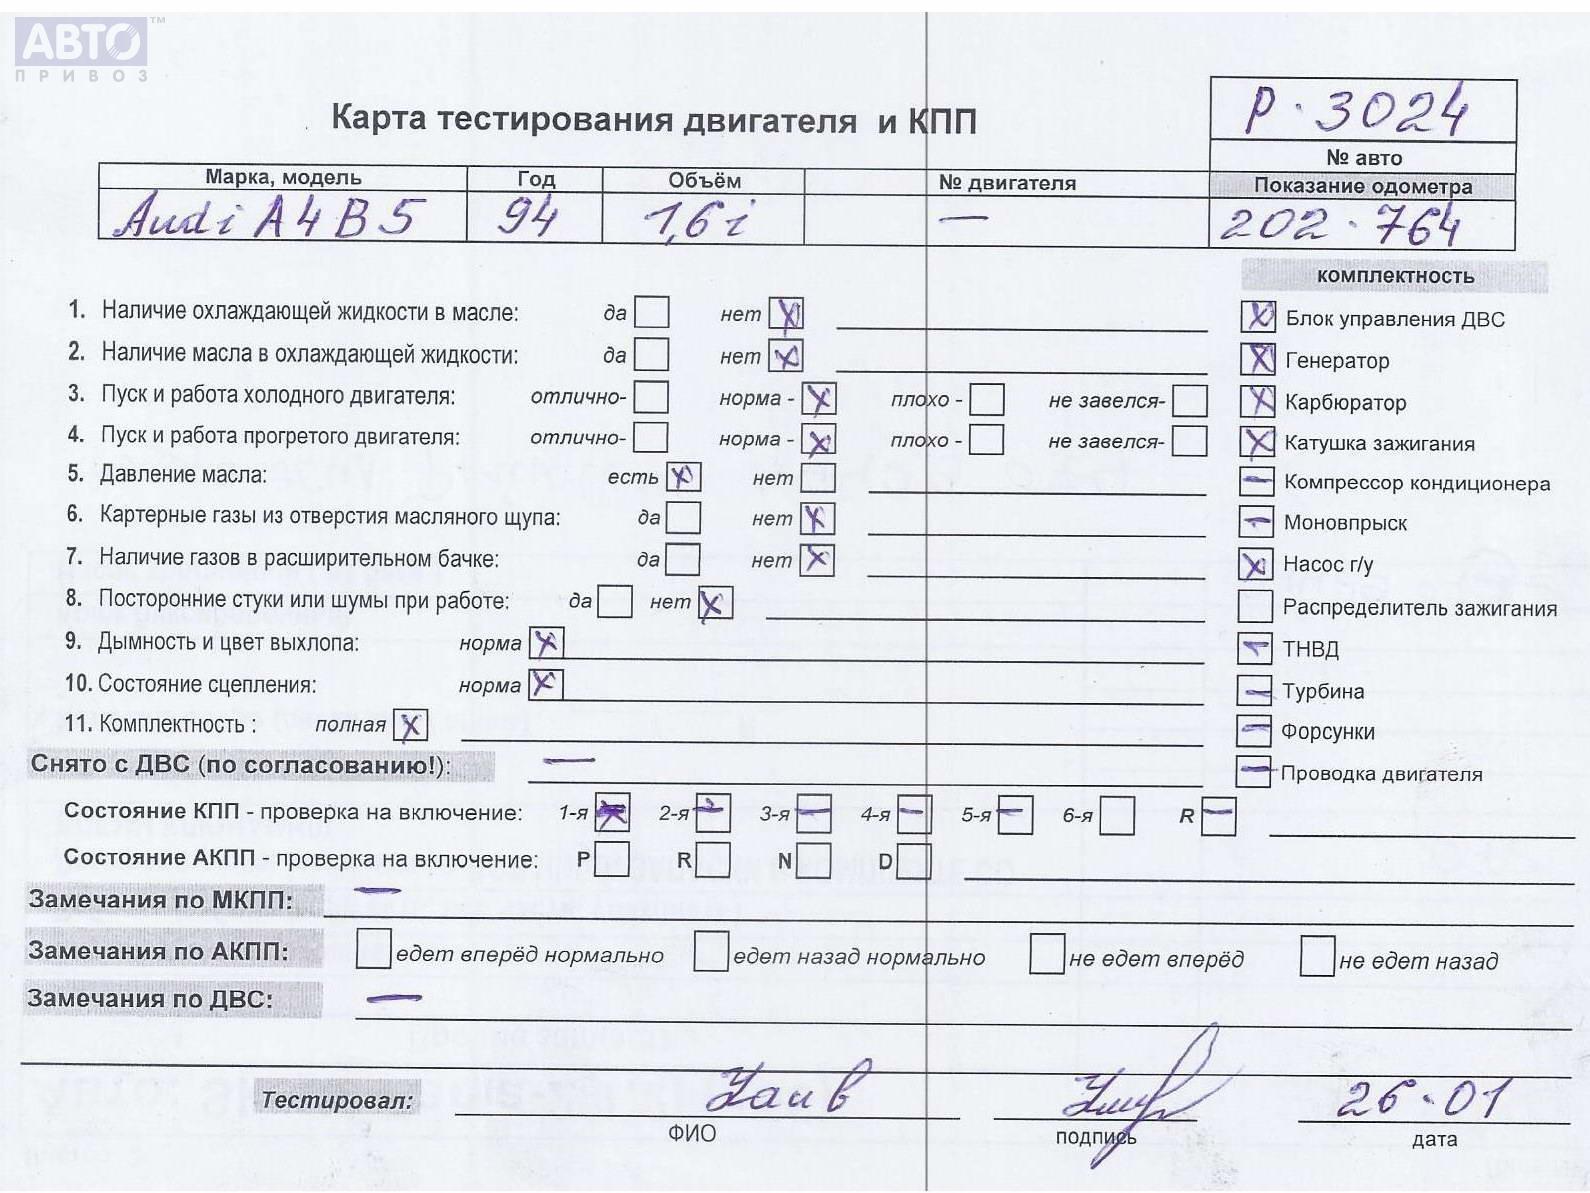 АВТО™
ПРИВОЗ
Карта тестирования двигателя и КПП
Р·3024
№ авто
Марка, модель Год Объём № двигателя Показание одометра
Audi A4 B5 94 1,6i — 202·764
комплектность
1. Наличие охлаждающей жидкости в масле: да нет X
X Блок управления ДВС
2. Наличие масла в охлаждающей жидкости: да нет X
X Генератор
3. Пуск и работа холодного двигателя: отлично- норма - X плохо - не завелся-
X Карбюратор
4. Пуск и работа прогретого двигателя: отлично- норма - X плохо - не завелся-
X Катушка зажигания
5. Давление масла: есть X нет
— Компрессор кондиционера
6. Картерные газы из отверстия масляного щупа: да нет X
— Моновпрыск
7. Наличие газов в расширительном бачке: да нет X
X Насос г/у
8. Посторонние стуки или шумы при работе: да нет X
Распределитель зажигания
9. Дымность и цвет выхлопа: норма X
— ТНВД
10. Состояние сцепления: норма X
— Турбина
11. Комплектность : полная X
— Форсунки
Снято с ДВС (по согласованию!): —
— Проводка двигателя
Состояние КПП - проверка на включение: 1-я 2-я — 3-я — 4-я — 5-я — 6-я R —
Состояние АКПП - проверка на включение: P R N D
Замечания по МКПП: —
Замечания по АКПП: едет вперёд нормально едет назад нормально не едет вперёд не едет назад
Замечания по ДВС: —
Тестировал: 26·01
ФИО подпись дата